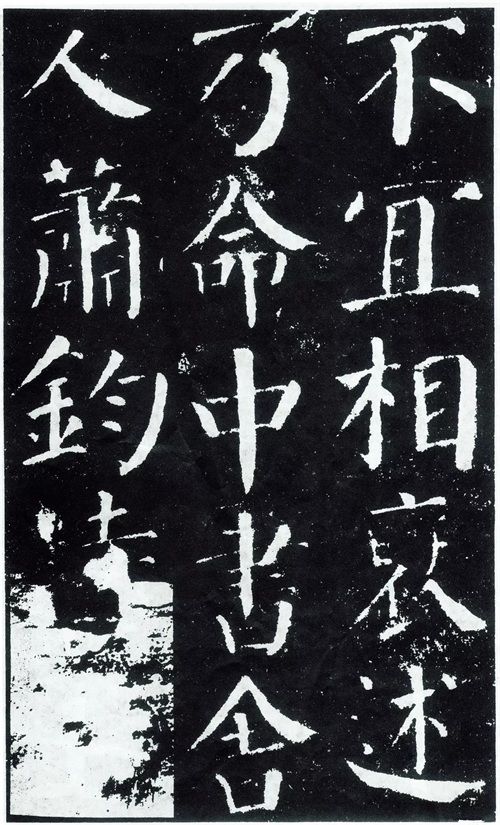 不宜相述
乃命中書舍
人蕭鈞